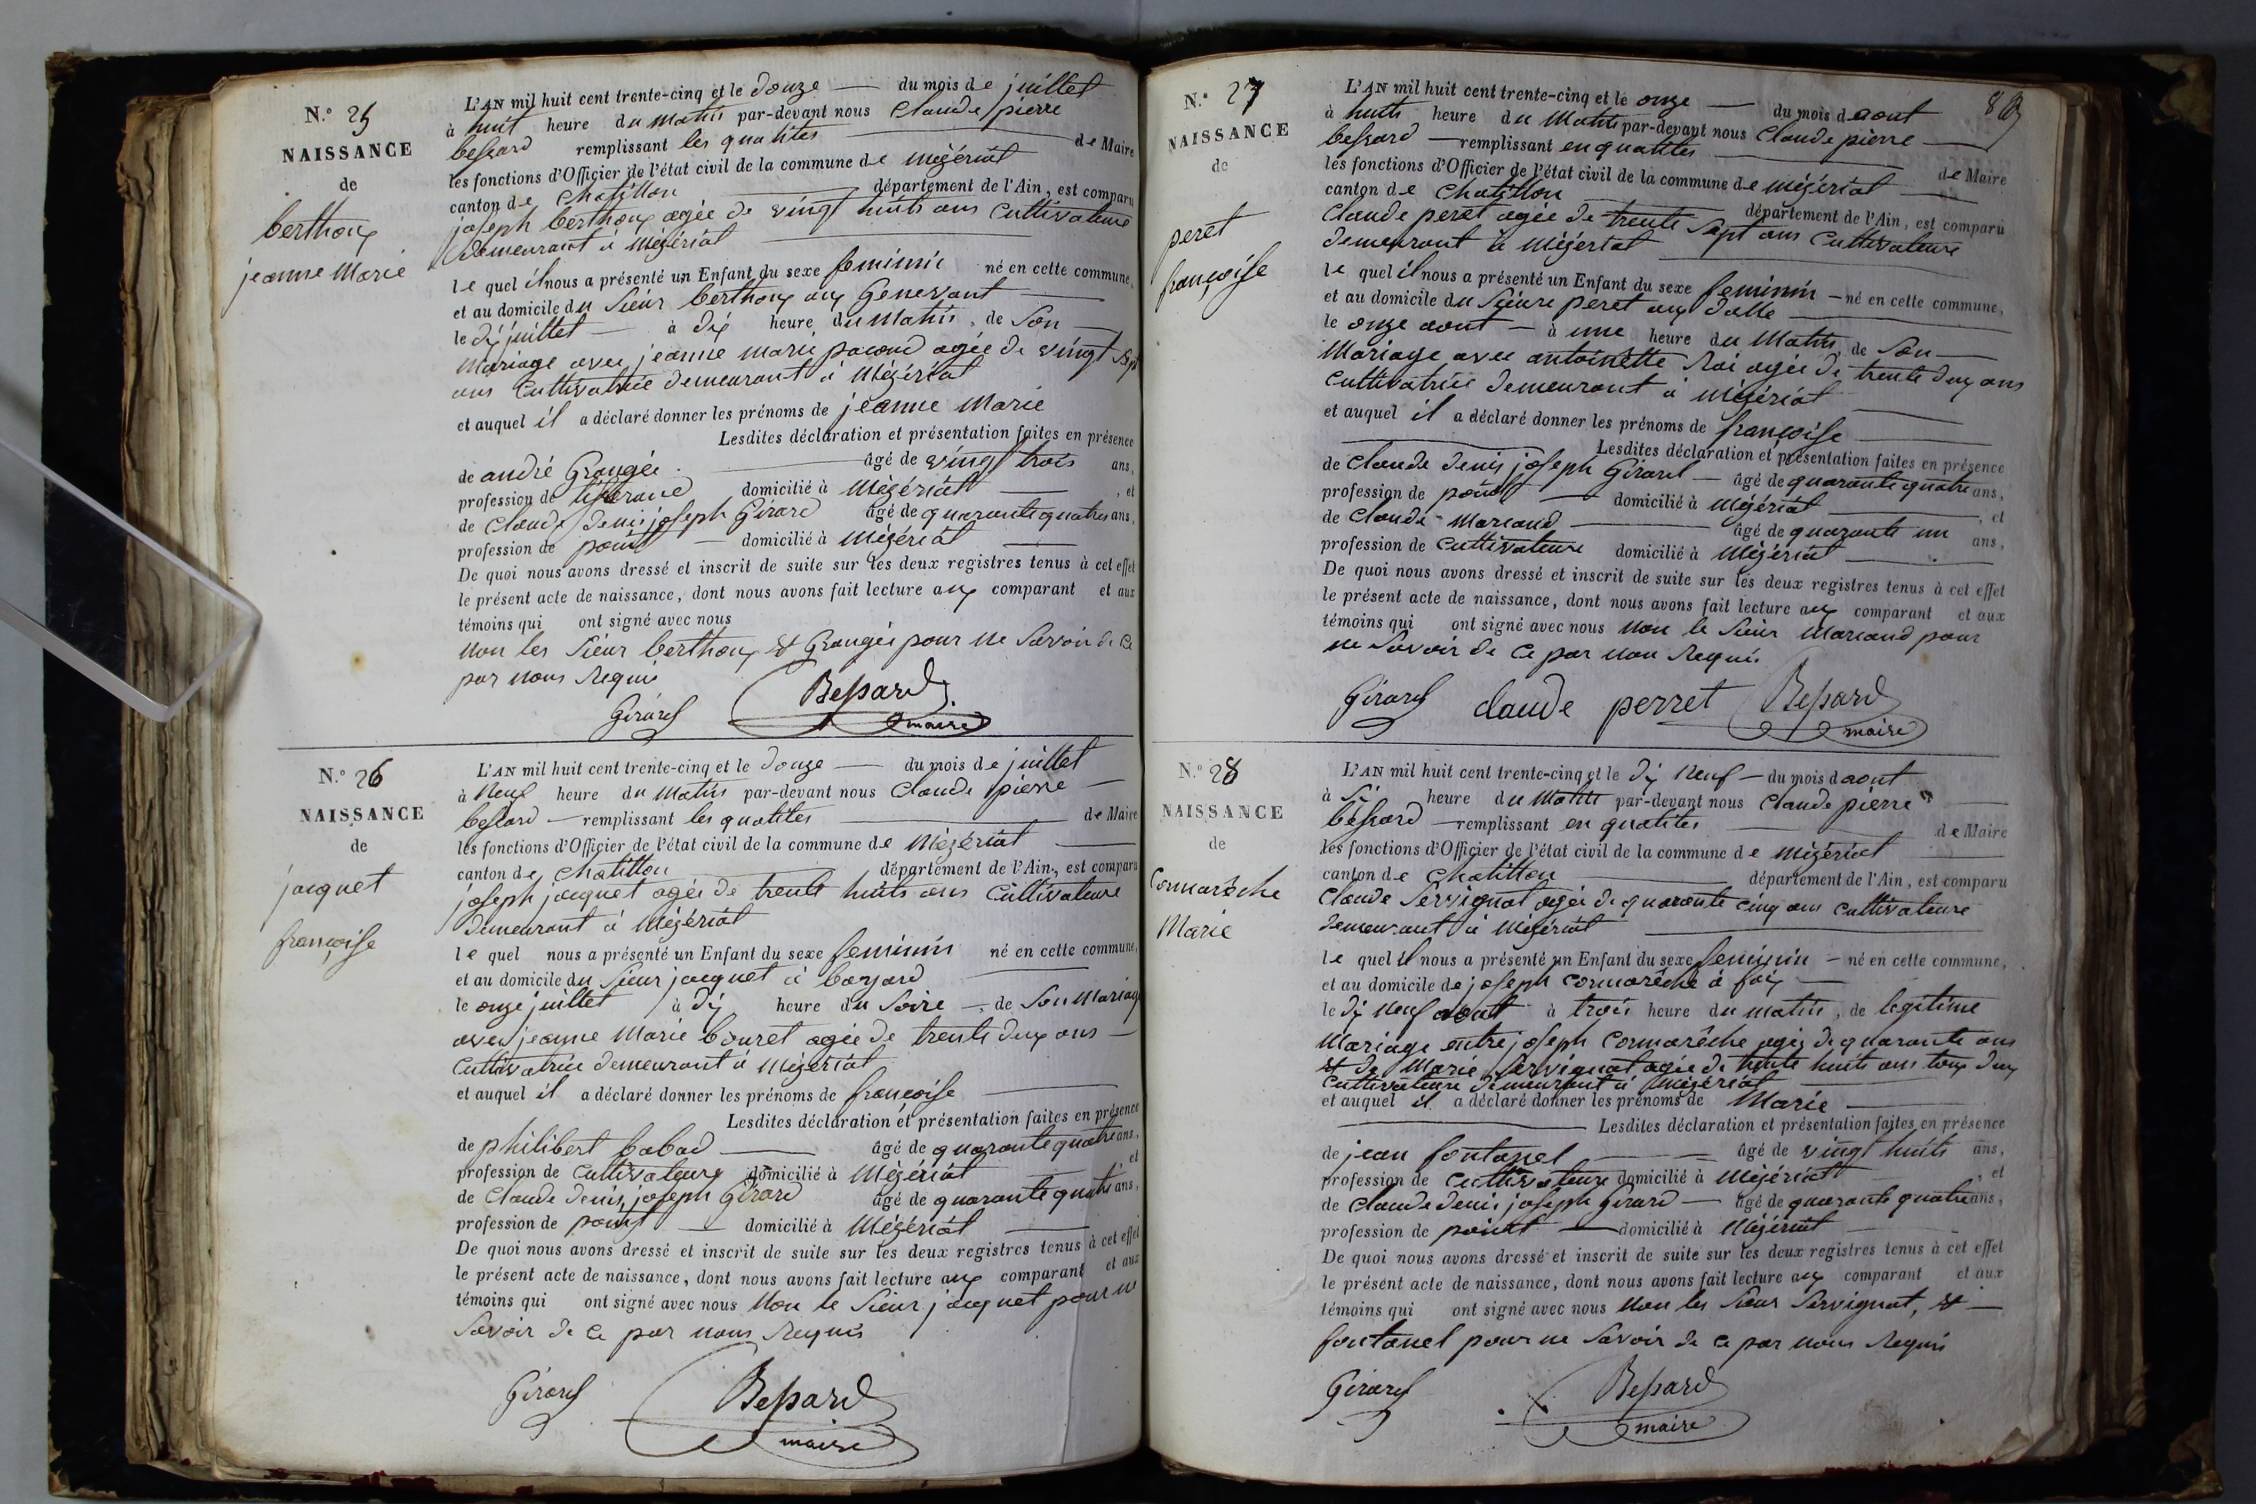 N.° 25
NAISSANCE
de
berthoux
jeanne Marie
L'AN mil huit cent trente-cinq et le douze du mois de juillet
à huit heure du Matin par-devant nous Claude pierre
bessard remplissant les qualités de Maire
les fonctions d'Officier de l'état civil de la commune de Mézériat
canton de Chatillon département de l'Ain, est comparu
joseph berthoux agée de vingt huits ans Cultivateure
demeurant à Mézériat
le quel il nous a présenté un Enfant du sexe feminin né en cette commune,
et au domicile du Sieur berthoux aux Genevant
le dix juillet à dix heure du Matin, de Son
Mariage avec jeanne marie pacoud agée de vingt sept
ans Cultivatrice demeurant à Mézériat
et auquel il a déclaré donner les prénoms de jeanne Marie
Lesdites déclaration et présentation faites en présence
de andré Grangée âgé de vingt trois ans,
profession de domicilié à Mézériat, et
de Claude denis joseph Girard âgé de quarante quatre ans,
profession de domicilié à Mézériat
De quoi nous avons dressé et inscrit de suite sur les deux registres tenus à cet effet
le présent acte de naissance, dont nous avons fait lecture aux comparant et aux
témoins qui ont signé avec nous
non les Sieur berthoux et Grangée pour ne Savoir de Ce
par nous Requis
Girard Bessard
maire
N.° 26
NAISSANCE
de
jacquet
françoise
L'AN mil huit cent trente-cinq et le douze du mois de juillet
à Neuf heure du Matin par-devant nous Claude pierre
bessard remplissant les qualités de Maire
les fonctions d'Officier de l'état civil de la commune de Mézériat
canton de Chatillon département de l'Ain, est comparu
joseph jacquet agée de trente huits ans Cultivateure
demeurant à Mézériat
le quel nous a présenté un Enfant du sexe feminin né en cette commune,
et au domicile du Sieur jacquet à
le onze juillet à dix heure du Soire, de Son Mariage
avec jeanne Marie bouret agée de trente deux ans
Cultivatrice demeurant à Mézériat
et auquel il a déclaré donner les prénoms de françoise
Lesdites déclaration et présentation faites en présence
de philibert babad âgé de quarante quatre ans,
profession de Cultivateure domicilié à Mézériat et
de Claude denis joseph Girard âgé de quarante quatre ans,
profession de domicilié à Mézériat
De quoi nous avons dressé et inscrit de suite sur les deux registres tenus à cet effet
le présent acte de naissance, dont nous avons fait lecture aux comparant et aux
témoins qui ont signé avec nous Non le Sieur jacquet pour ne
Savoir de Ce par nous Requis
Girard Bessard
maire
N.° 27
NAISSANCE
de
peret
françoise
L'AN mil huit cent trente-cinq et le onze du mois d aout
à huits heure du Matin par-devant nous Claude pierre
bessard remplissant en qualites de Maire
les fonctions d'Officier de l'état civil de la commune de Mézériat
canton de Chatillon département de l'Ain, est comparu
Claude peret agée de trente Sept ans Cultivateure
demeurant à Mézériat
le quel il nous a présenté un Enfant du sexe feminin né en cette commune,
et au domicile du Sieure peret aux
le onze aout à une heure du Matin, de Son
Mariage avec antoinette Roi agée de trente deux ans
Cultivatrice demeurant à Mézériat
et auquel il a déclaré donner les prénoms de françoise
Lesdites déclaration et présentation faites en présence
de Claude denis joseph Girard âgé de quarante quatre ans,
profession de domicilié à Mézériat, et
de Claude Marcand âgé de quarante un ans,
profession de Cultivateure domicilié à Mézériat
De quoi nous avons dressé et inscrit de suite sur les deux registres tenus à cet effet
le présent acte de naissance, dont nous avons fait lecture aux comparant et aux
témoins qui ont signé avec nous Non le Sieur Marcand pour
ne Savoir de Ce par nous Requis
Girard claude perret Bessard
maire
N.° 28
NAISSANCE
de
Cormarèche
Marie
L'AN mil huit cent trente-cinq et le dix Neuf du mois d aout
à Six heure du Matin par-devant nous Claude pierre
bessard remplissant en qualites de Maire
les fonctions d'Officier de l'état civil de la commune de Mézériat
canton de Chatillon département de l'Ain, est comparu
Claude Servignat agée de quarante cinq ans Cultivateure
demeurant à Mézériat
le quel il nous a présenté un Enfant du sexe feminin né en cette commune,
et au domicile de joseph Cormarèche à
le dix Neuf aout à trois heure du matin, de legitime
Mariage entre joseph Cormarèche agée de quarante ans
et de Marie Servignat agée de trente huits ans tous deux
Cultivateure demeurant à Mézériat
et auquel il a déclaré donner les prénoms de Marie
Lesdites déclaration et présentation faites en présence
de jean fontanel âgé de vingt huits ans,
profession de Cultivateure domicilié à Mézériat, et
de Claude denis joseph Girard âgé de quarante quatre ans,
profession de domicilié à Mézériat
De quoi nous avons dressé et inscrit de suite sur les deux registres tenus à cet effet
le présent acte de naissance, dont nous avons fait lecture aux comparant et aux
témoins qui ont signé avec nous Non les Sieur Servignat, et
fontanel pour ne Savoir de Ce par nous Requis
Girard Bessard
maire